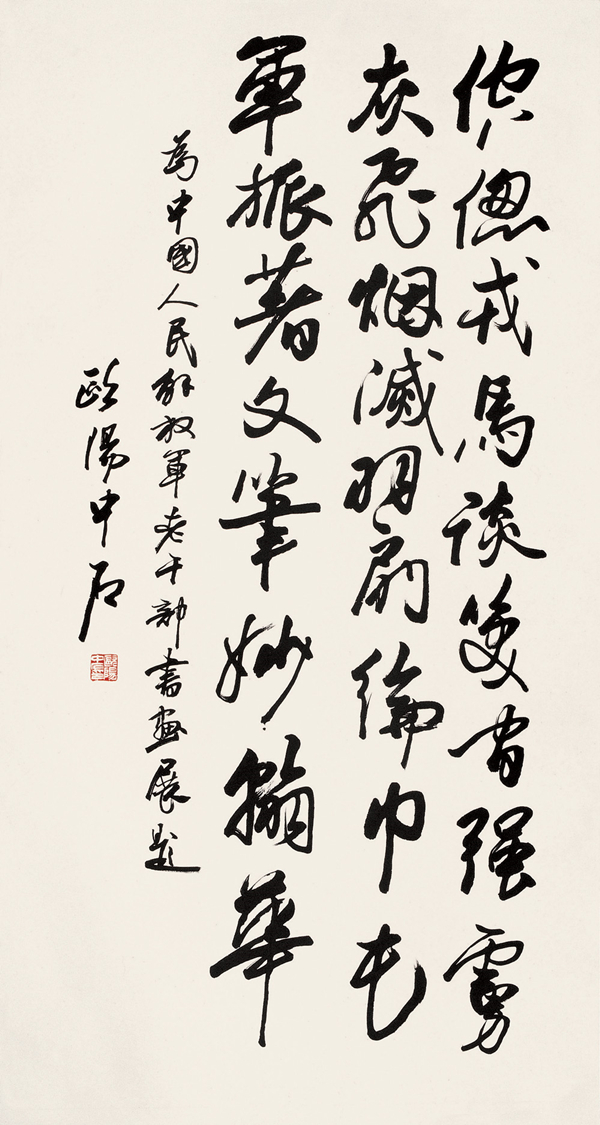 倥傯戎馬談笑首強虜
灰飛烟滅羽扇綸巾毛
軍振著文筆妙翰華
為中國人民解放軍老干部書畫展題
歐陽中石